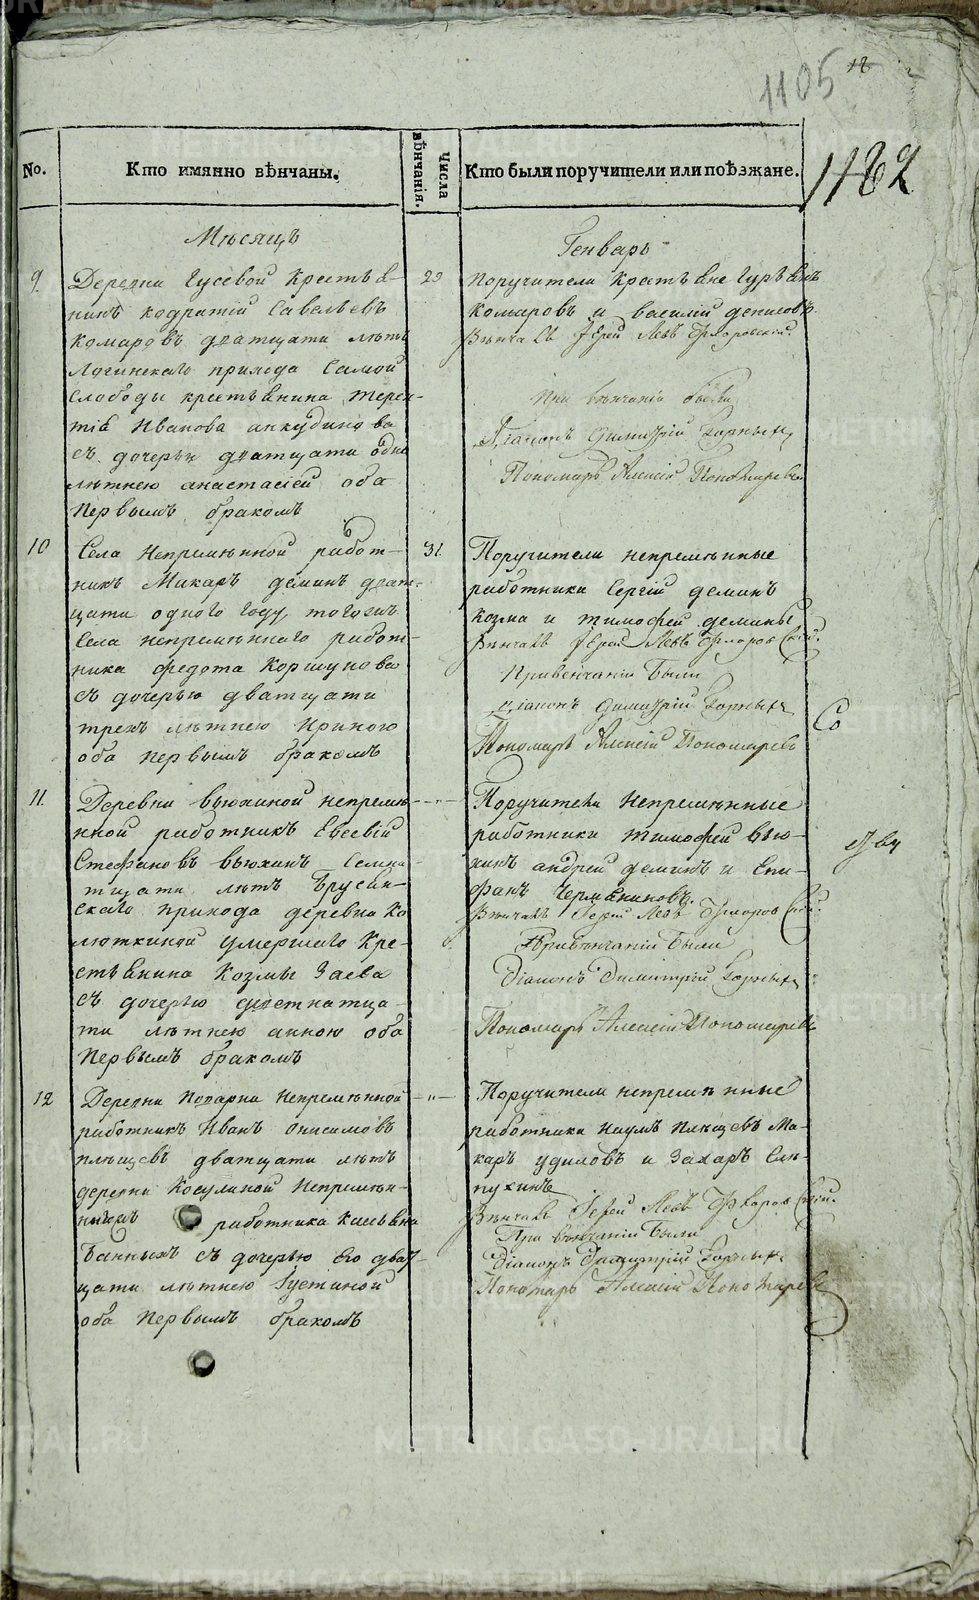 1105
18
1182
No.
Кто имянно вѣнчаны.
Числа вѣнчанія.
Кто были поручители или поѣзжане.
Мѣсяцъ
Генварь
9.
Деревни Гусевой Крестья-
нинъ кодратій Савельевъ
комаровъ дватцати лѣтъ
Логинскаго прихода самой
Слободы крестьянина терен-
тія Иванова анкудинова
съ дочерью дватцати одно
лѣтнею анастасіей оба
первымъ бракомъ
29
поручители крестьяне
комаровъ и василій денисовъ
Вѣнчалъ Іерей Левъ
При вѣнчаніи были
Діаконъ Димитрій Горныхъ
Пономарь Алексій Пономаревъ
10
Села Непремѣнной работ-
никъ Макаръ деминъ дват-
цати одного году того жъ
Села непремѣннаго работ-
ника федота Коршунова
съ дочерью дватцати
трехъ лѣтнею Ириною
оба первымъ бракомъ
31.
Поручители непремѣнные
работники Сергій деминъ
козма и тимофей демины
Вѣнчалъ Іерей Левъ
При венчаніи были
діаконъ Димитрій Горныхъ
Пономарь Алексій Пономаревъ
Со
11.
Деревни вьюхиной непремѣ-
нной работникъ Евсевій
Стефановъ вьюхинъ Семна-
тцати лѣтъ Брусян-
скаго прихода деревни Ко
люткиной умершаго кре-
стьянина Козмы Заева
съ дочерью
ти лѣтнею анною оба
первымъ бракомъ
- " -
Поручители Непремѣнные
работники тимофей вью-
хинъ андрей деминъ и Епи-
фанъ Чермяниновъ.
Вѣнчалъ Іерей Левъ
При вѣнчаніи были
Діаконъ Димитрій Горныхъ
Пономарь Алексій Пономаревъ
12
Деревни Поварни Непремѣнной
работникъ Иванъ Онисимовъ
плѣщевъ дватцати лѣтъ
деревни Косулиной Непремѣн-
работника касьяна
Банныхъ съ дочерью его дват
цати лѣтнею Густиной
оба первымъ бракомъ
- " -
Поручители непремѣнные
работники наумъ плѣщевъ Ма-
каръ удиловъ и Захаръ Еля-
пухинъ
Вѣнчалъ Іерей Левъ
При вѣнчаніи были
Діаконъ Димитрій Горныхъ
Пономарь Алексій Пономаревъ
METRIKI.GASO-URAL.RU